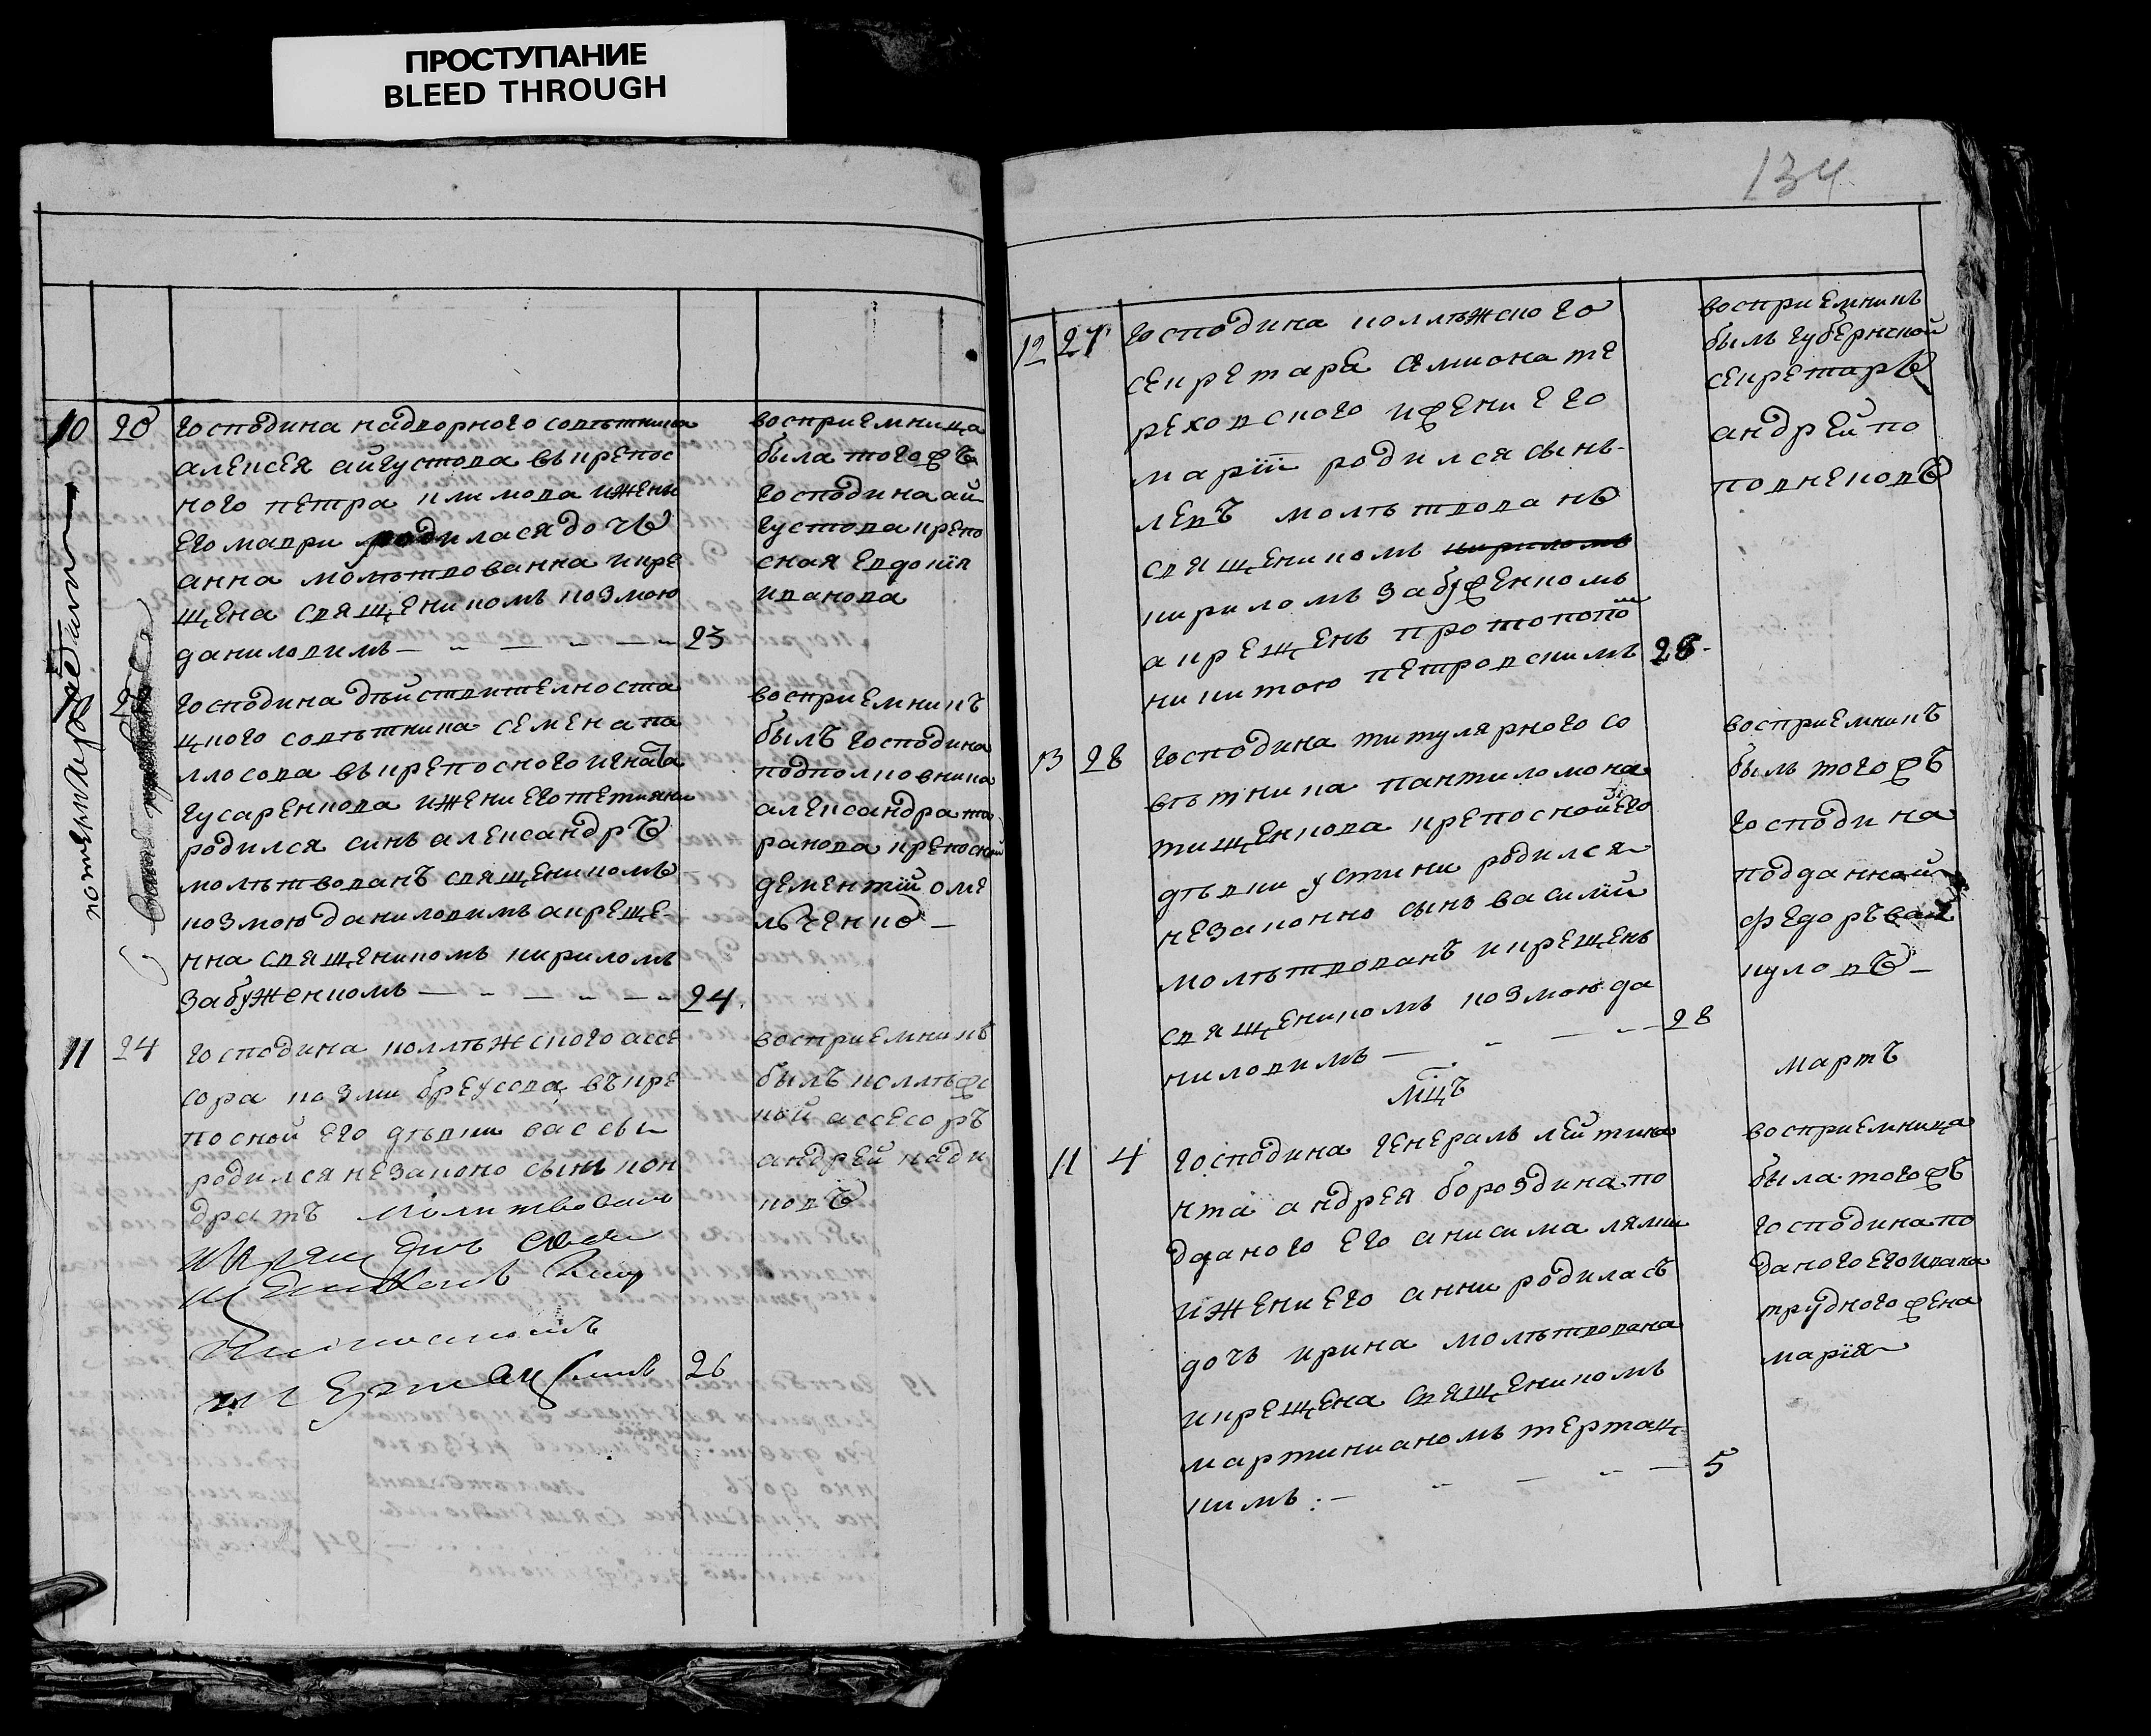 ПРОСТУПАНИЕ
BLEED THROUGH
10 20 господина надворного советника
алексея августова вькрепос
ного петра климова ижени
его маври родилася дочь
анна молытвованна икре
щена священикомъ козмою
даниловимъ — „ — „ — „ 23
восприемница
была тогожъ
господина ав
густова крепо
сная евдокія
иванова
господина дѣйствителноста
цкого совѣтника семена па
ллосова вькрепосного игната
гусаренкова ижени его тетияни
родился синь александръ
молытвованъ священикомъ
козмою даниловимъ акреще
нна священикомъ кириломъ
забуженкомъ — „ — „ — „ 24.
восприемникъ
былъ господина
подполковника
александра та
ранова крепосной
дементій оме
льченко —
11 24 господина коллѣжского ассе
сора козми бреусова въкре
посной его дѣвки вассы
родился незаконо сынъ кон
дратъ молитвованъ
26
восприемникъ
былъ коллѣжс
кой ассесоръ
андрей кади
ковъ
134
12 27 господина коллѣжского
секретаря симиона те
реховского ижени его
маріи родился сынь
левъ молытвованъ
священикомъ кириломъ
кириломъ забуженкомъ
акрещень протопопо
никитою петровскимъ 28.
восприемникъ
былъ губернской
секретаръ
андрей по
повнековъ
13 28 господина титулярного со
вѣтника пантилимона
тищенкова крепосной его
дѣвки устини родился
незаконно сынъ василій
молытвованъ икрещень
священикомъ козмою да
ниловимъ — „ — „ 28
восприемникъ
былъ тогожъ
господина
подданной
федоръ
куловъ —
мцъ мартъ
11 4 господина генералъ лейтина
нта андрея бороздина по
дданого его анисима лями
ижени его анни родилась
дочь ирина молытвована
икрещена священикомъ
мартинианомъ тертац
кимъ : — „ — „ — 5
восприемница
была тогожъ
господина по
даного его ивана
трудного жена
марія